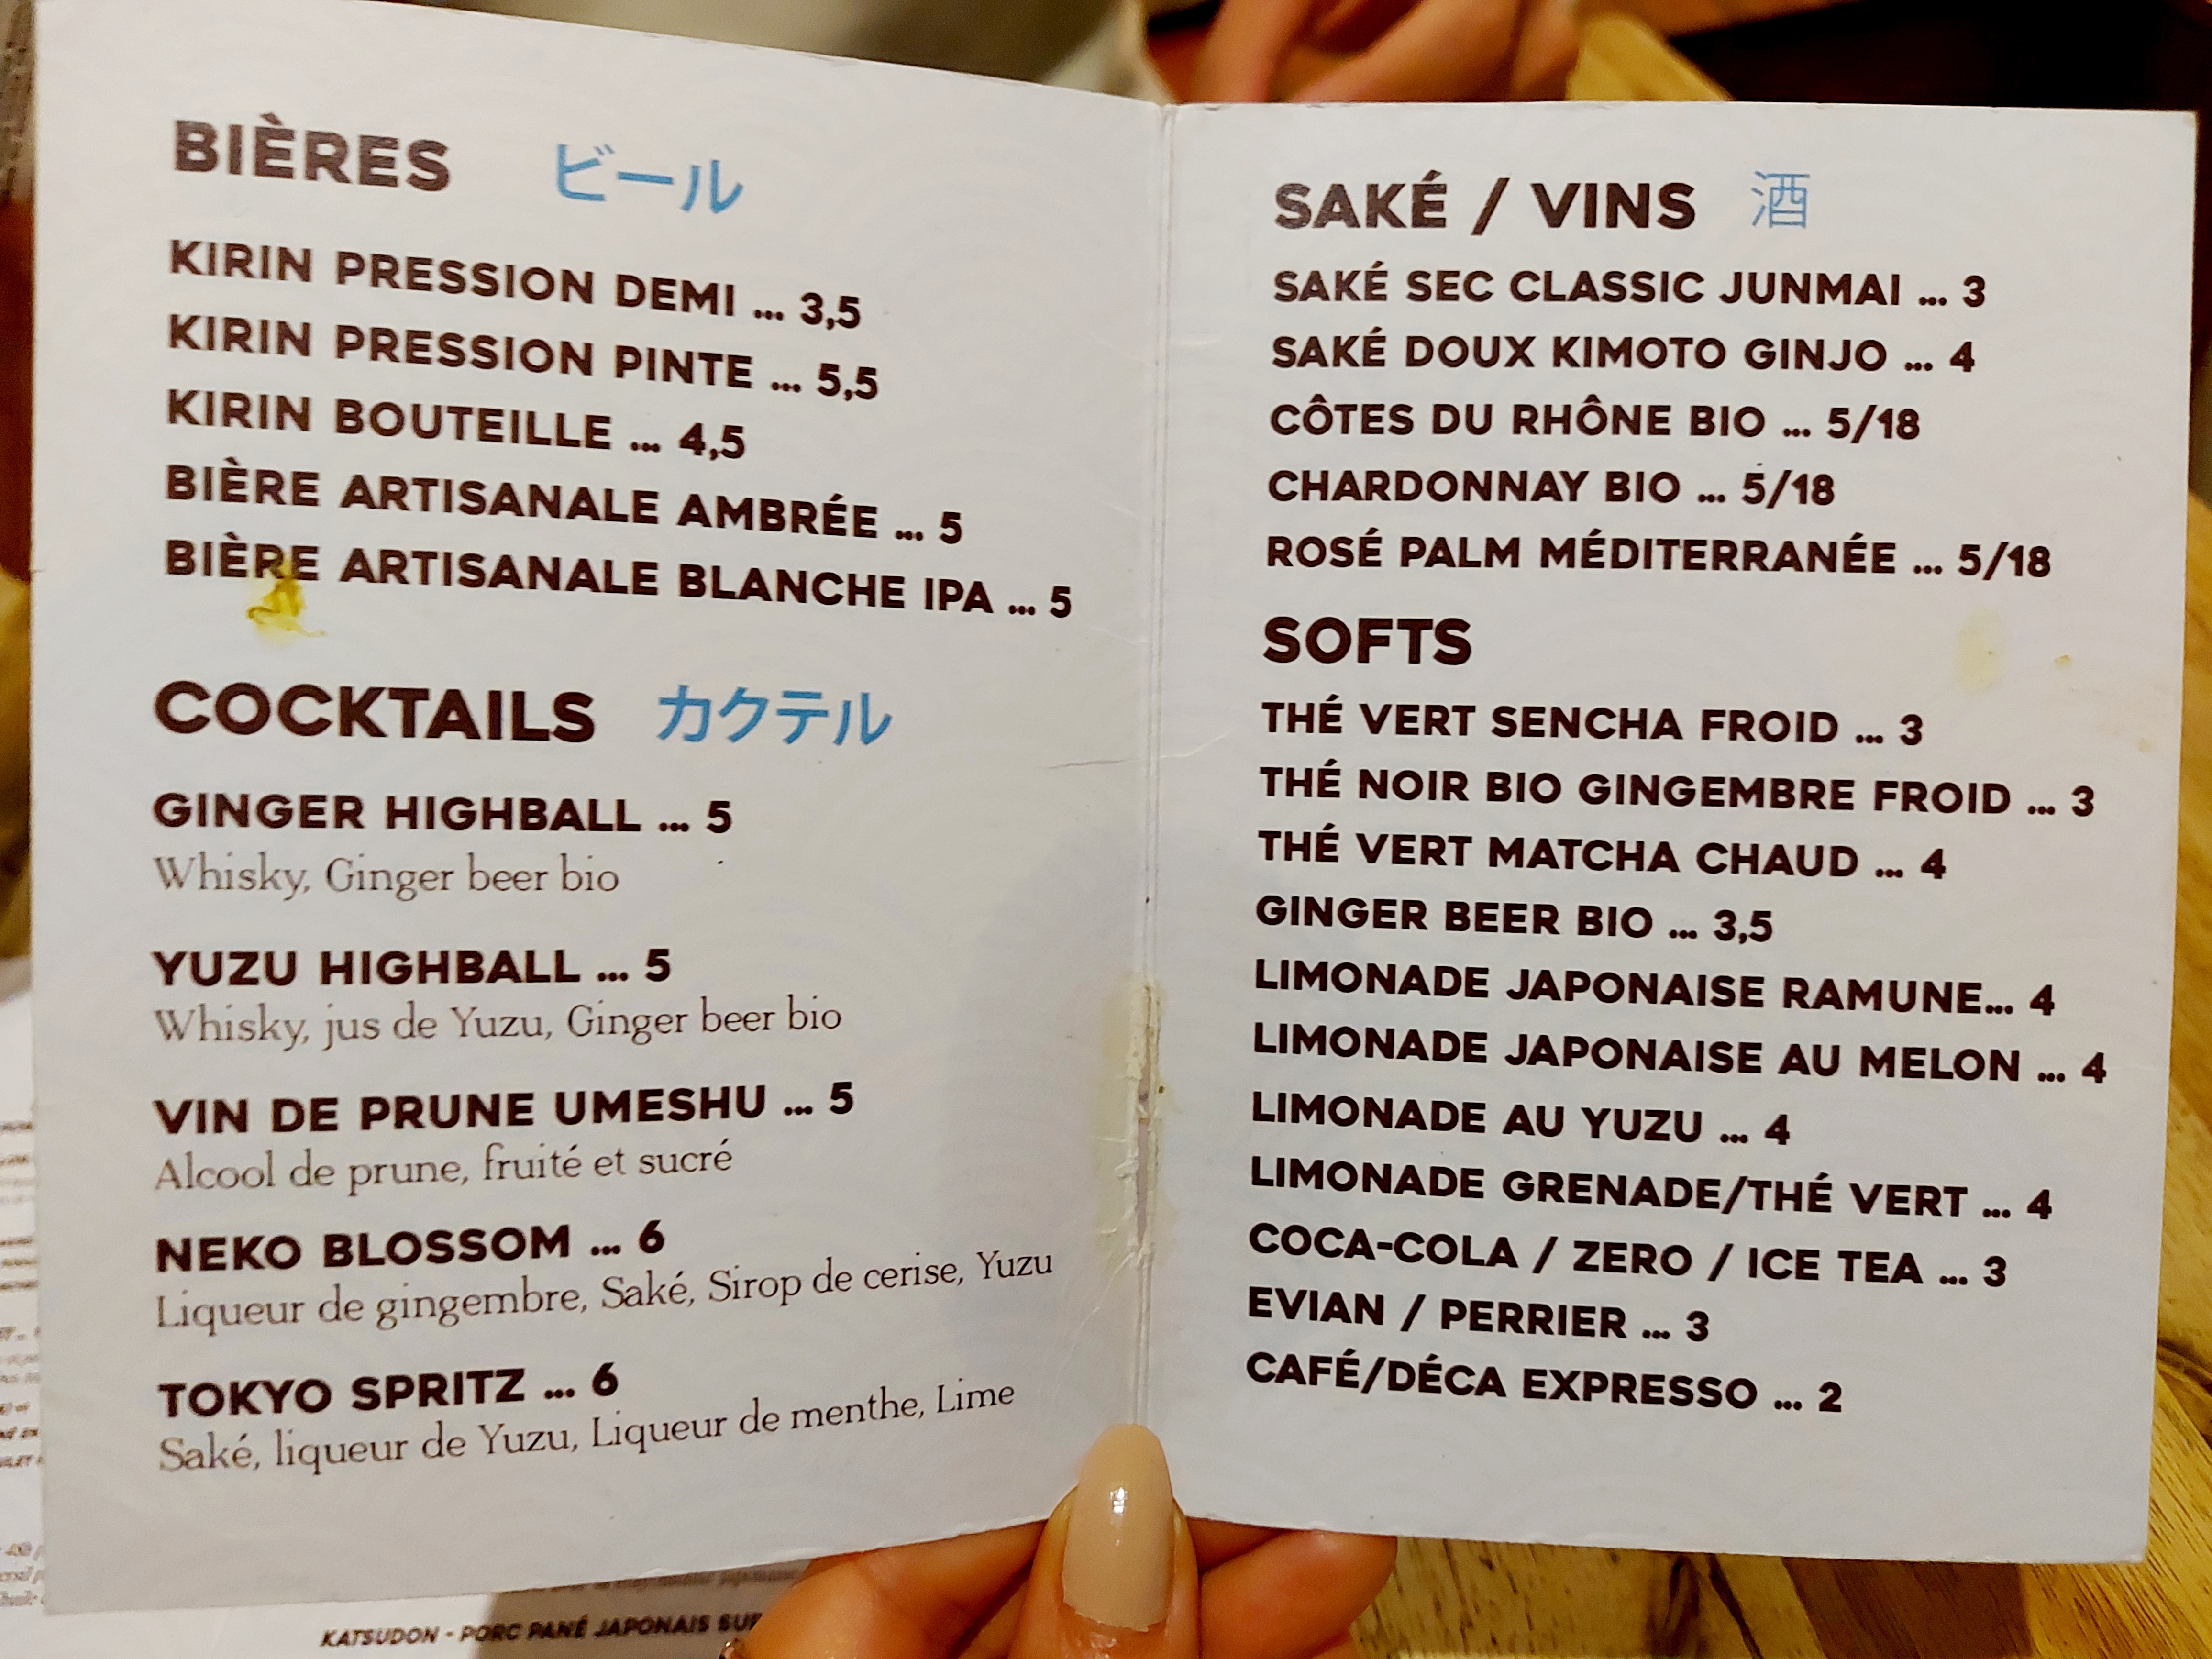 BIÈRES ビール
KIRIN PRESSION DEMI ... 3,5
KIRIN PRESSION PINTE ... 5,5
KIRIN BOUTEILLE ... 4,5
BIÈRE ARTISANALE AMBRÉE ... 5
BIÈRE ARTISANALE BLANCHE IPA ... 5
COCKTAILS カクテル
GINGER HIGHBALL ... 5
Whisky, Ginger beer bio
YUZU HIGHBALL ... 5
Whisky, jus de Yuzu, Ginger beer bio
VIN DE PRUNE UMESHU ... 5
Alcool de prune, fruité et sucré
NEKO BLOSSOM ... 6
Liqueur de gingembre, Saké, Sirop de cerise, Yuzu
TOKYO SPRITZ ... 6
Saké, liqueur de Yuzu, Liqueur de menthe, Lime
SAKÉ / VINS 酒
SAKÉ SEC CLASSIC JUNMAI ... 3
SAKÉ DOUX KIMOTO GINJO ... 4
CÔTES DU RHÔNE BIO ... 5/18
CHARDONNAY BIO ... 5/18
ROSÉ PALM MÉDITERRANÉE ... 5/18
SOFTS
THÉ VERT SENCHA FROID ... 3
THÉ NOIR BIO GINGEMBRE FROID ... 3
THÉ VERT MATCHA CHAUD ... 4
GINGER BEER BIO ... 3,5
LIMONADE JAPONAISE RAMUNE... 4
LIMONADE JAPONAISE AU MELON ... 4
LIMONADE AU YUZU ... 4
LIMONADE GRENADE/THÉ VERT ... 4
COCA-COLA / ZERO / ICE TEA ... 3
EVIAN / PERRIER ... 3
CAFÉ/DÉCA EXPRESSO ... 2
KATSUDON - PORC PANÉ JAPONAIS SUR